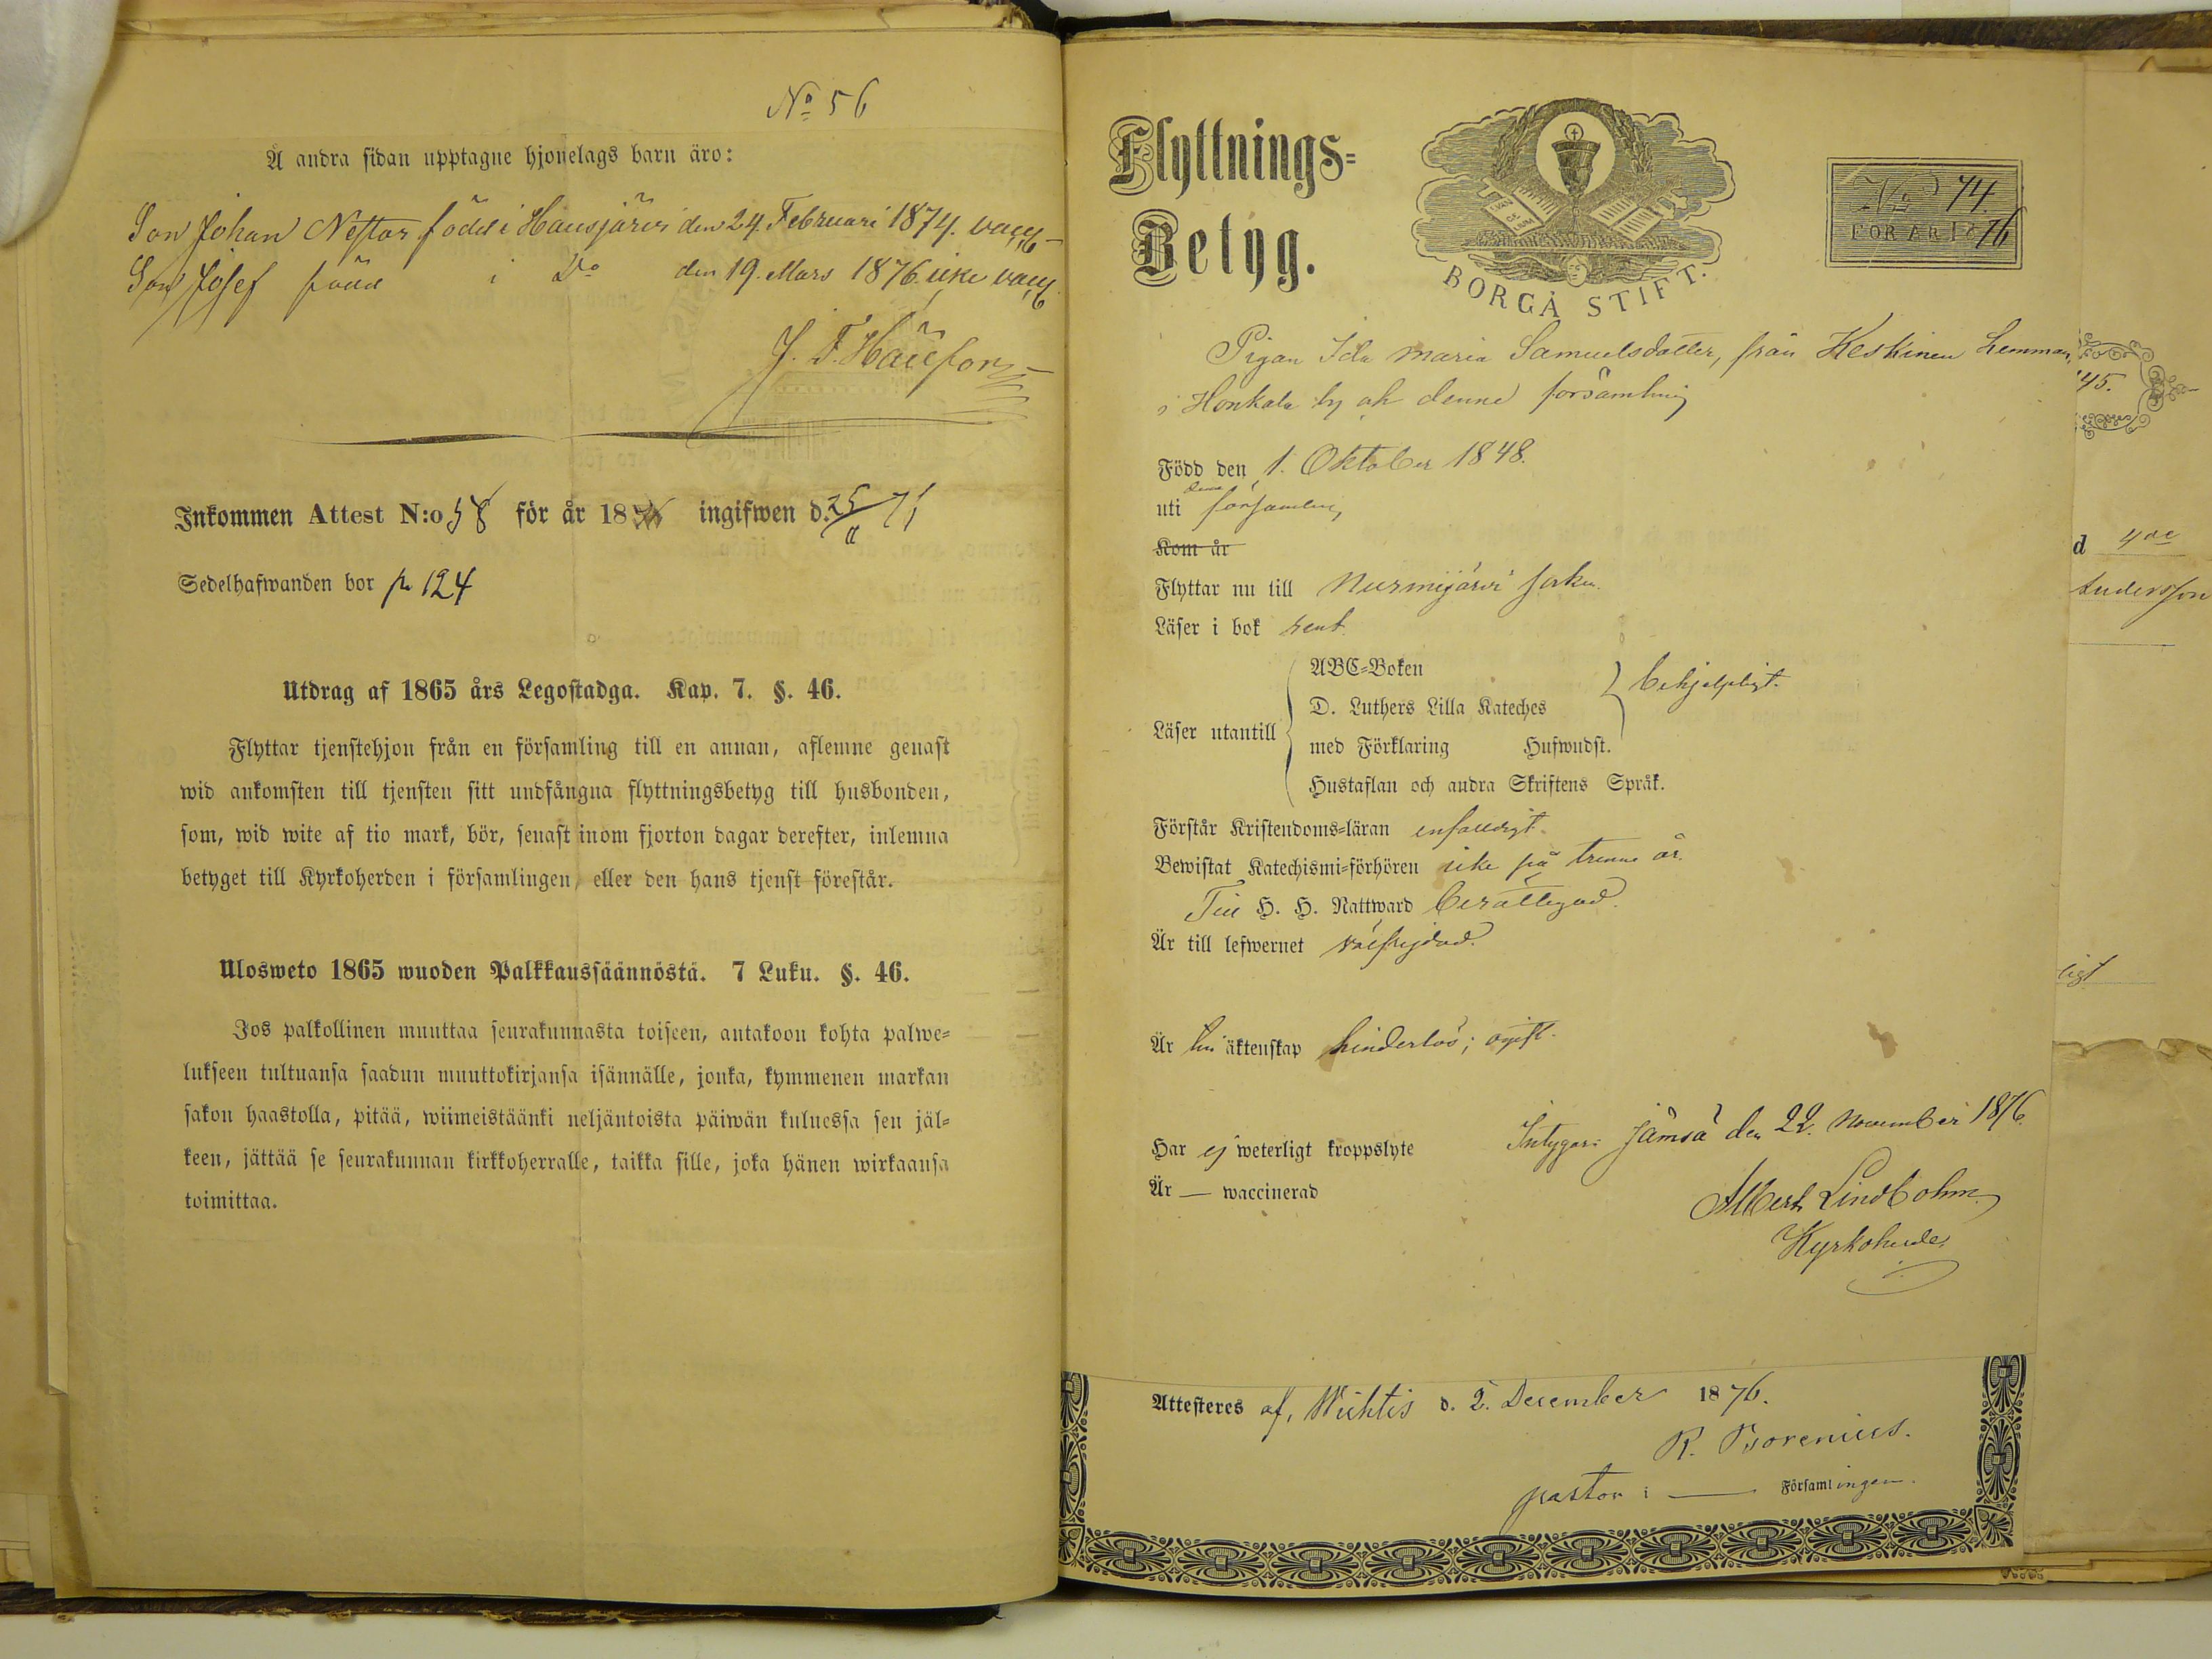 No 56
Å andra sidan upptagne hjonelags barn äro:
Son Johan Nestor född i Hausjärvi den 24. Februari 1874. vacc.
Son Josef född i Do den 19. Mars 1876 icke vacc.
Inkommen Attest N:o 58 för år 18 ingifwen d. 25/11
Sedelhafwanden bor p 124
Utdrag af 1865 års Legostadga. Kap. 7. §. 46.
Flyttar tjenstehjon från en församling till en annan, aflemne genast
wid ankomsten till tjensten sitt undfångna flyttningsbetyg till husbonden,
som, wid wite af tio mark, bör, senast inom fjorton dagar derefter, inlemna
betyget till Kyrkoherden i församlingen, eller den hans tjenst förestår.
Ulosweto 1865 wuoden Palkkaussäännöstä. 7 Luku. §. 46.
Jos palkollinen muuttaa seurakunnasta toiseen, antakoon kohta palwe=
lukseen tultuansa saadun muuttokirjansa isännälle, jonka, kymmenen markan
sakon haastolla, pitää, wiimeistäänki neljäntoista päiwän kuluessa sen jäl=
keen, jättää se seurakunnan kirkkoherralle, taikka sille, joka hänen wirkaansa
toimittaa.
Flyttnings=
Betyg.
BORGÅ STIFT.
No 74.
FÖR ÅR 1876
Pigan Ida Maria Samuelsdotter, från Keskinen Hemman
i Honkala by ah denne församling
Född den 1. Oktober 1848.
uti denne församling
Kom år
Flyttar nu till Nurmijärvi socken.
Läser i bok rent.
Läser utantill
ABC=Boken
D. Luthers Lilla Kateches
med Förklaring Hufwudst.
Hustaflan och andra Skriftens Språk.
behjelpligt.
Förstår Kristendoms=läran enfaldigt.
Bewistat Katechismi=förhören icke på trenne år.
Till H. H. Nattward berättigad.
Är till lefwernet välfrejdad.
Är till äktenskap hinderlös; ogift.
Har ej weterligt kroppslyte
Intygar: Jämsä den 22. November 1876.
Är — waccinerad
Albert Lindbohm
Kyrkoherde.
Attesteres af, Wichtis d. 2. December 1876.
R. Borenius.
pastor i — Församlingen.
145.
d 4de
Andersson
ligt